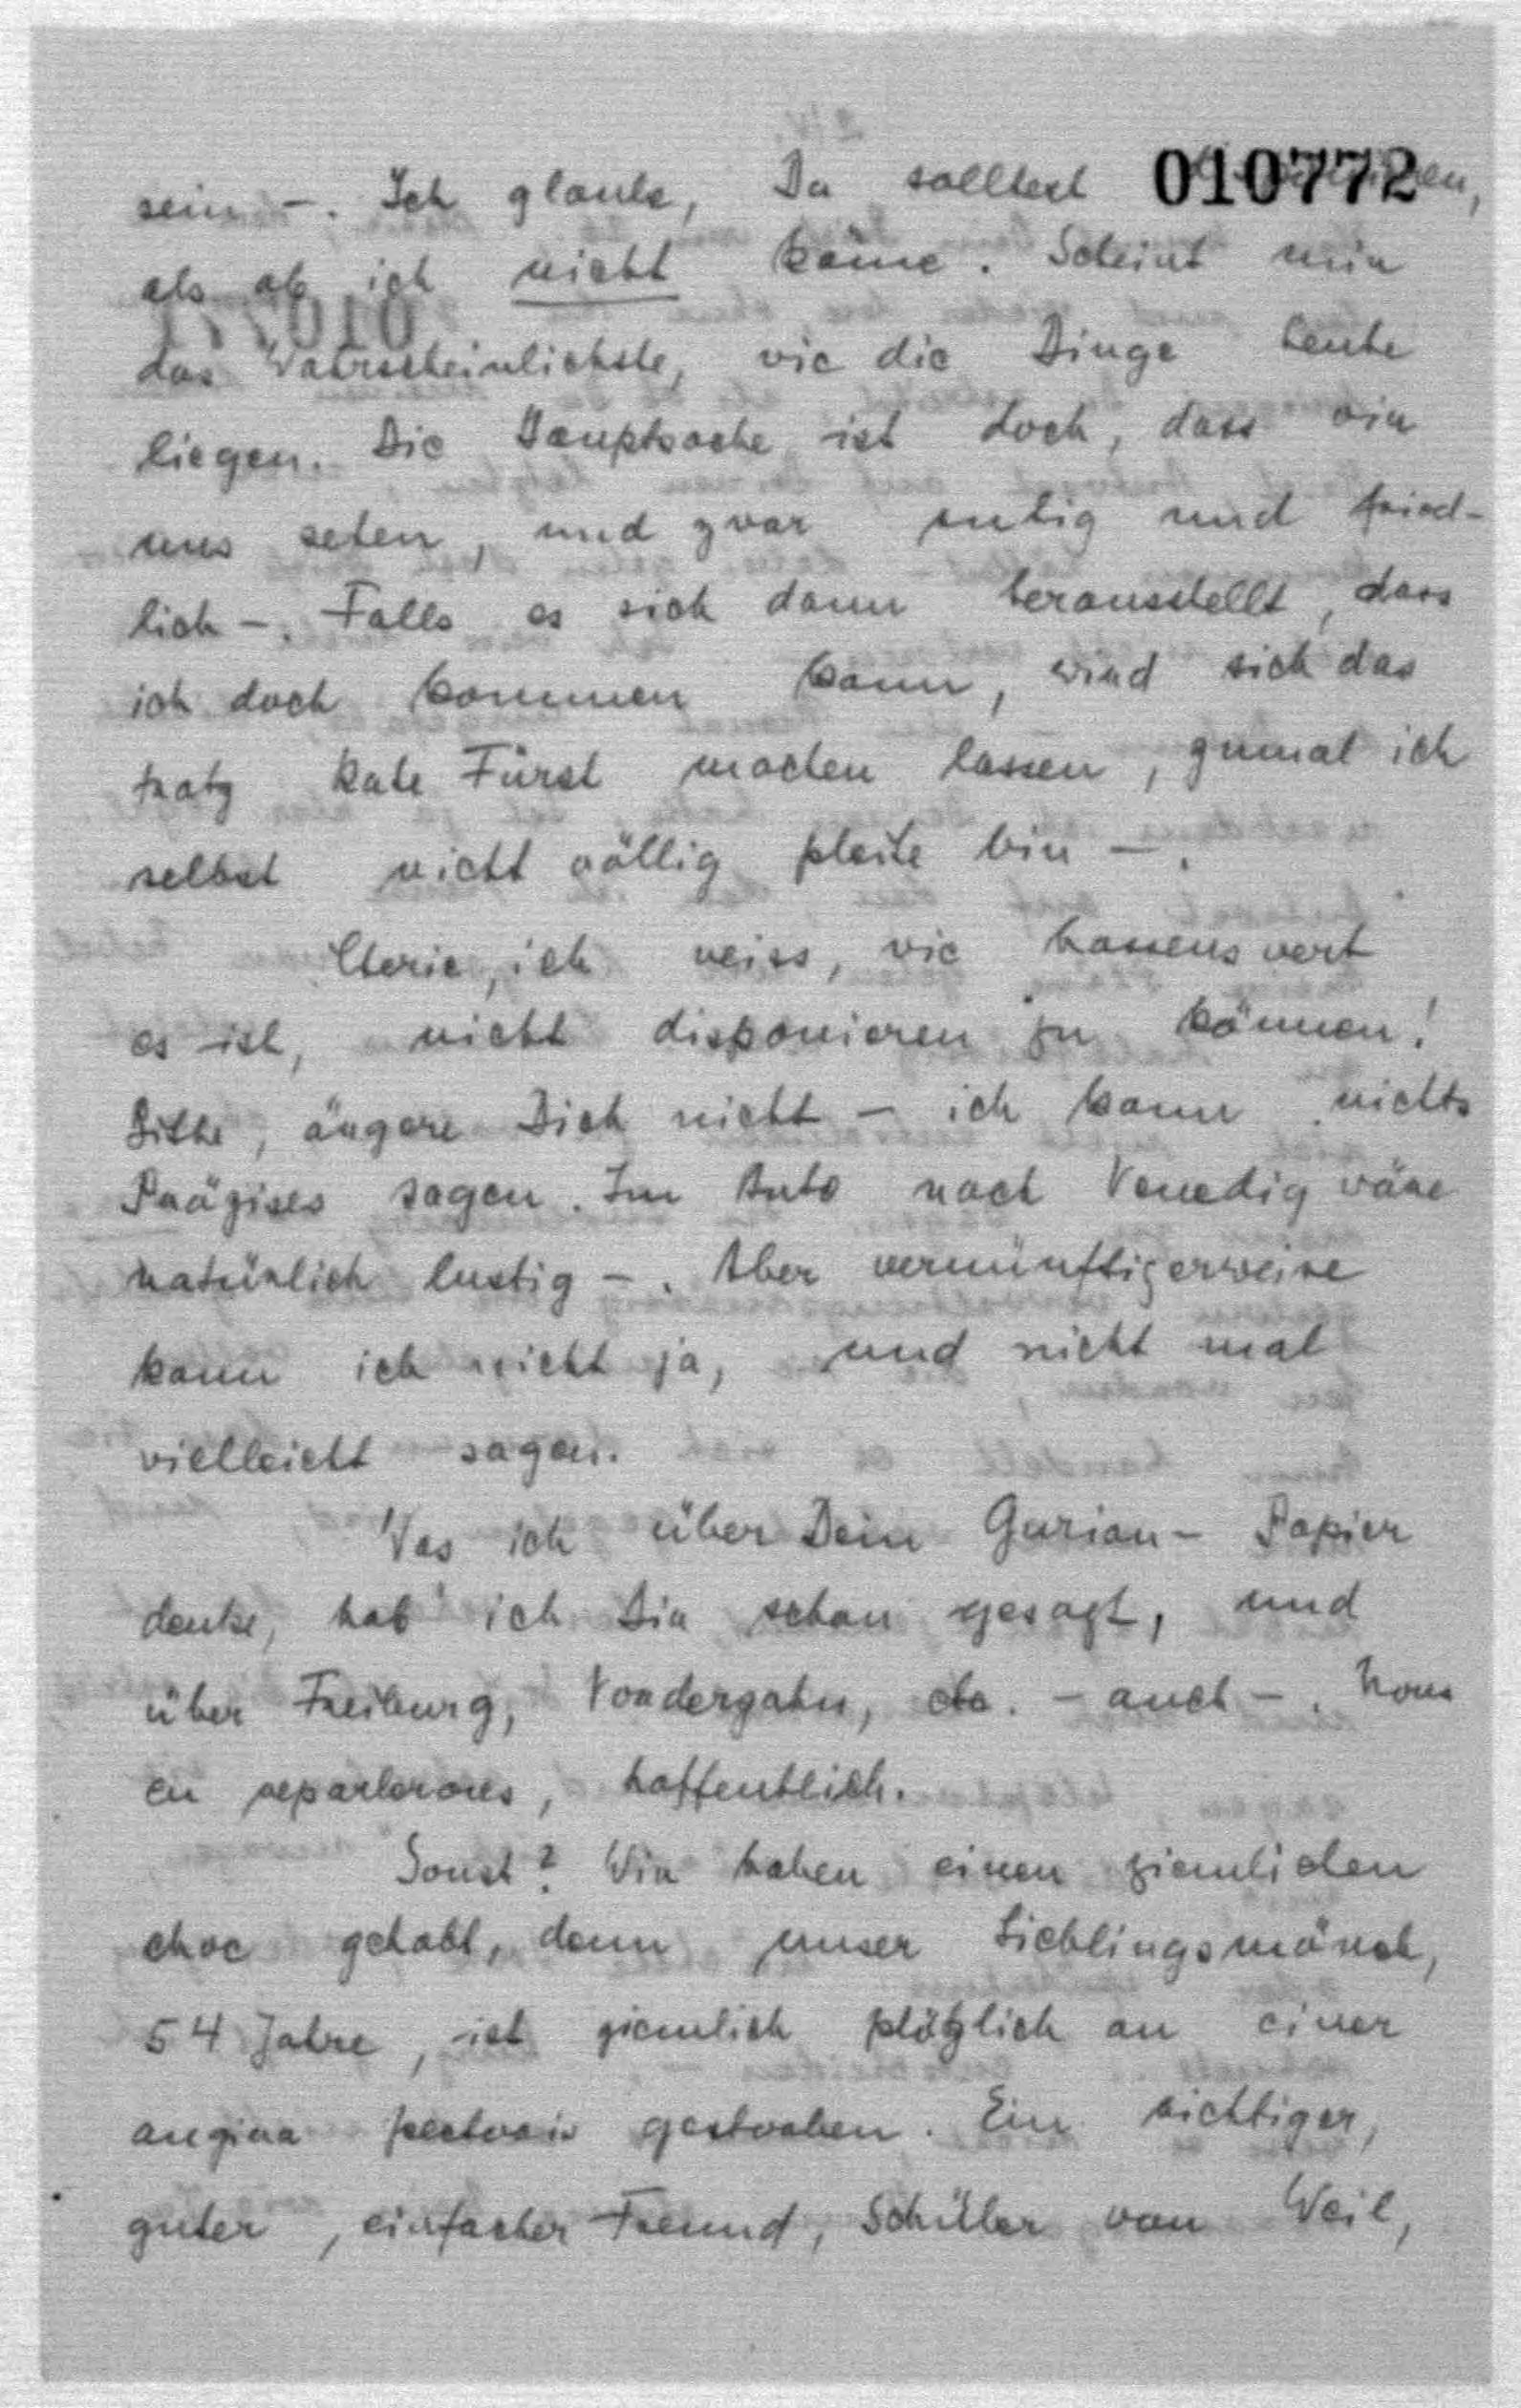 010772
sein -. Ich glaube, Du solltest
als ob ich nicht käme. Scheint mir
das Wahrscheinlichste, wie die Dinge heute
liegen. Die Hauptsache ist doch, dass wir
uns sehen, und zwar ruhig und fried-
lich -. Falls es sich dann herausstellt, dass
ich doch kommen kann, wird sich das
trotz Kate Fürst machen lassen, zumal ich
selbst nicht völlig pleite bin -.
Cherie, ich weiss, wie hassenswert
es ist, nicht disponieren zu können!
Bitte, ärgere Dich nicht - ich kann nichts
Präzises sagen. Im Auto nach Venedig wäre
natürlich lustig -. Aber vernünftigerweise
kann ich nicht ja, und nicht mal
vielleicht sagen.
Was ich über Dein Gurian- Papier
denke, hab' ich Dir schon gesagt, und
über Freiburg, Vordergahn, etc. - auch -. Nous
en reparlerons, hoffentlich.
Sonst? Wir haben einen ziemlichen
choc gehabt, denn unser Lieblingsmönch,
54 Jahre, ist ziemlich plötzlich an einer
angina pectoris gestorben. Ein richtiger,
guter, einfacher Freund, Schüler von Weil,